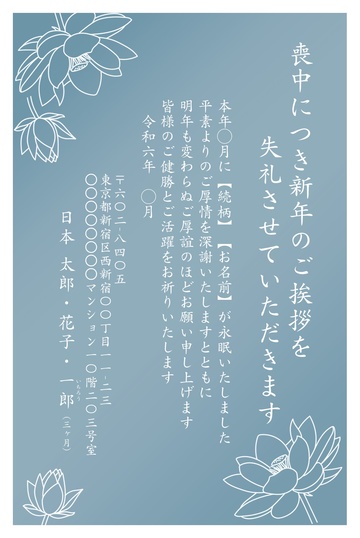 喪中につき新年のご挨拶を
失礼させていただきます
本年〇月に【続柄】【お名前】が永眠いたしました
平素よりのご厚情を深謝いたしますとともに
明年も変わらぬご厚誼のほどお願い申し上げます
皆様のご健勝とご活躍をお祈りいたします
令和六年 〇月
〒六〇二-八四〇五
東京都新宿区西新宿〇〇丁目一一-二三
〇〇〇〇〇〇〇〇マンション一〇階二〇三号室
日本 太郎・花子・一郎(三ヶ月)
いちろう